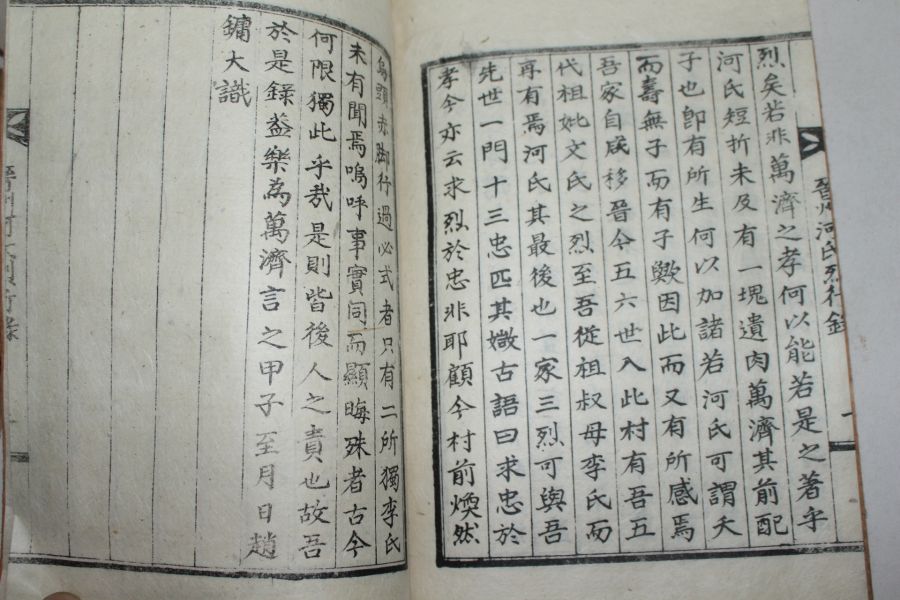 晉州河氏烈行錄
烈矣若非萬濟之孝何以能若是之著乎
河氏短折未及有一塊遺肉萬濟其前配
子也卽有所生何以加諸若河氏可謂夭
而壽無子而有子歟因此而又有所感焉
吾家自咸移晉今五六世入此村有吾五
代祖妣文氏之烈至吾從祖叔母李氏而
再有焉河氏其最後也一家三烈可與吾
先世一門十三忠匹其媺古語曰求忠於
孝今亦云求烈於忠非耶顧今村前煥然
烏頭赤脚行過必式者只有二所獨李氏
未有聞焉嗚呼事實同而顯晦殊者古今
何限獨此乎哉是則皆後人之責也故吾
於是錄益樂為萬濟言之甲子至月日趙
鏞大識